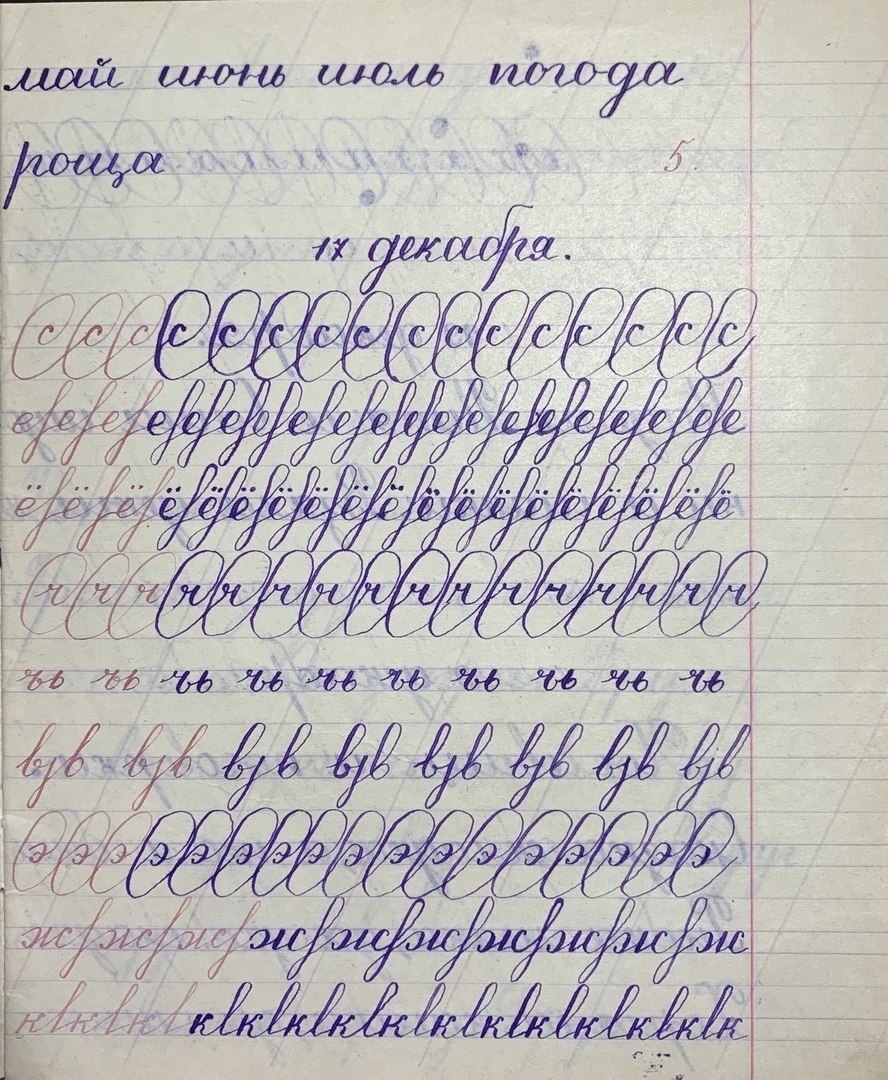 май июнь июль погода
роща 5
17 декабря.
с с с с с с с с с с с с с с с с
е е е е е е е е е е е е е е е е е е е е
ё ё ё ё ё ё ё ё ё ё ё ё ё ё ё ё ё ё ё
ч ч ч ч ч ч ч ч ч ч ч ч ч ч ч ч
ъь ъь ъь ъь ъь ъь ъь ъь ъь ъь
в в в в в в в в в в в в в в в в
э э э э э э э э э э э э э э э э э
ж ж ж ж ж ж ж ж ж ж
к к к к к к к к к к к к к к к